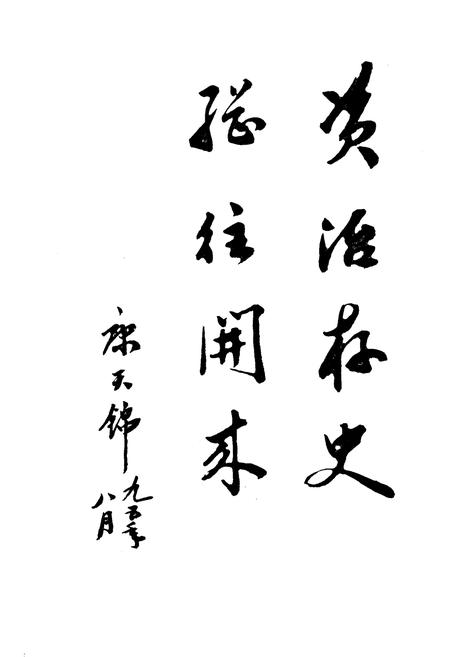 资治存史
继往开来
康天锦
九五年
八月